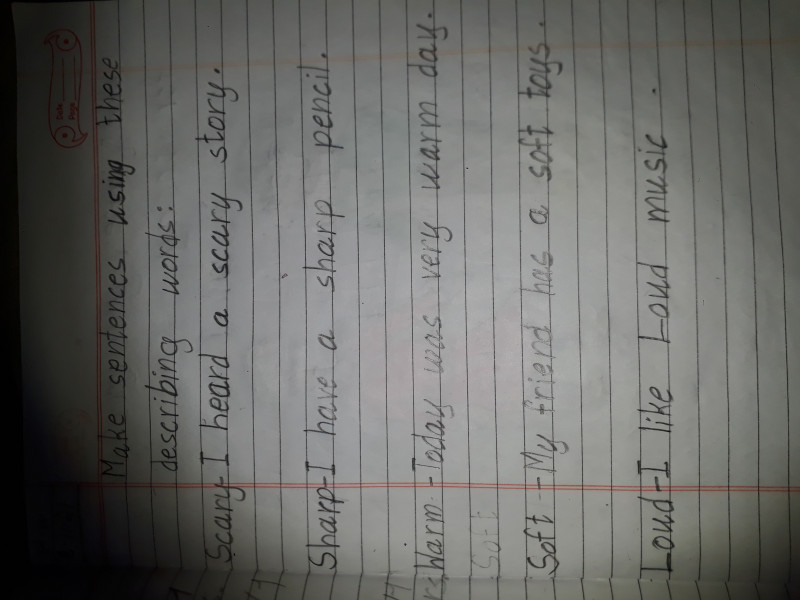 Date
Page
Make sentences using these
describing words:
Scary-I heard a scary story.
Sharp-I have a sharp pencil.
Warm-Today was very warm day.
Soft
Soft-My friend has a soft toys.
Loud-I like Loud music.